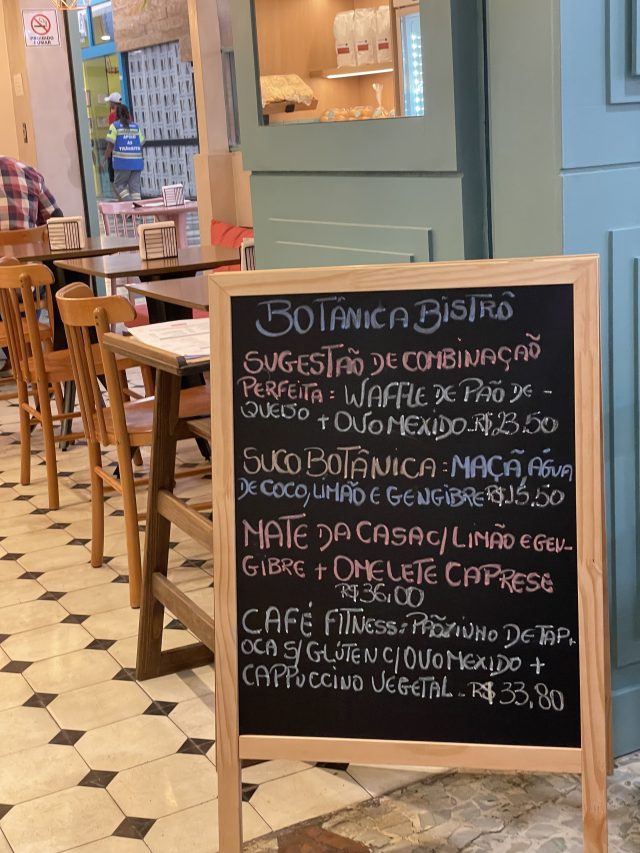 PROIBIDO
FUMAR
APOIO
AO
BOTÂNICA BISTRÔ
SUGESTÃO DE COMBINAÇAÕ
PERFEITA: WAFFLE DE PÃO DE-
QUEIJO + OVO MEXIDO.R$23,50
SUCO BOTÂNICA: MAÇÃ ÁGUA
DE COCO, LIMÃO E GENGIBRE R$15,50
MATE DA CASA C/ LIMÃO E GEN-
GIBRE + OMELETE CAPRESE
R$36,00
CAFÉ FITNESS: PÃOZINHO DE TAPI
OCA S/ GLÚTEN C/ OVO MEXIDO +
CAPPUCCINO VEGETAL - R$33,80